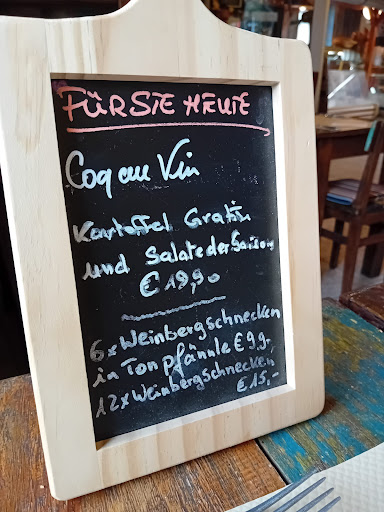 FÜR SIE HEUTE
Coq au Vin
Kartoffel Gratin
und Salate der Saison
€ 19,90
6x Weinbergschnecken
in Tonpfännle € 9,-
12x Weinbergschnecken
€ 15,-